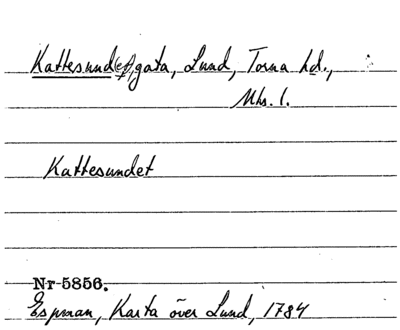 Kattesund(et), gata, Lund, Torna hd.,
Mhs. l.
Kattesundet
Nr 5856.
Espman, Karta över Lund, 1784